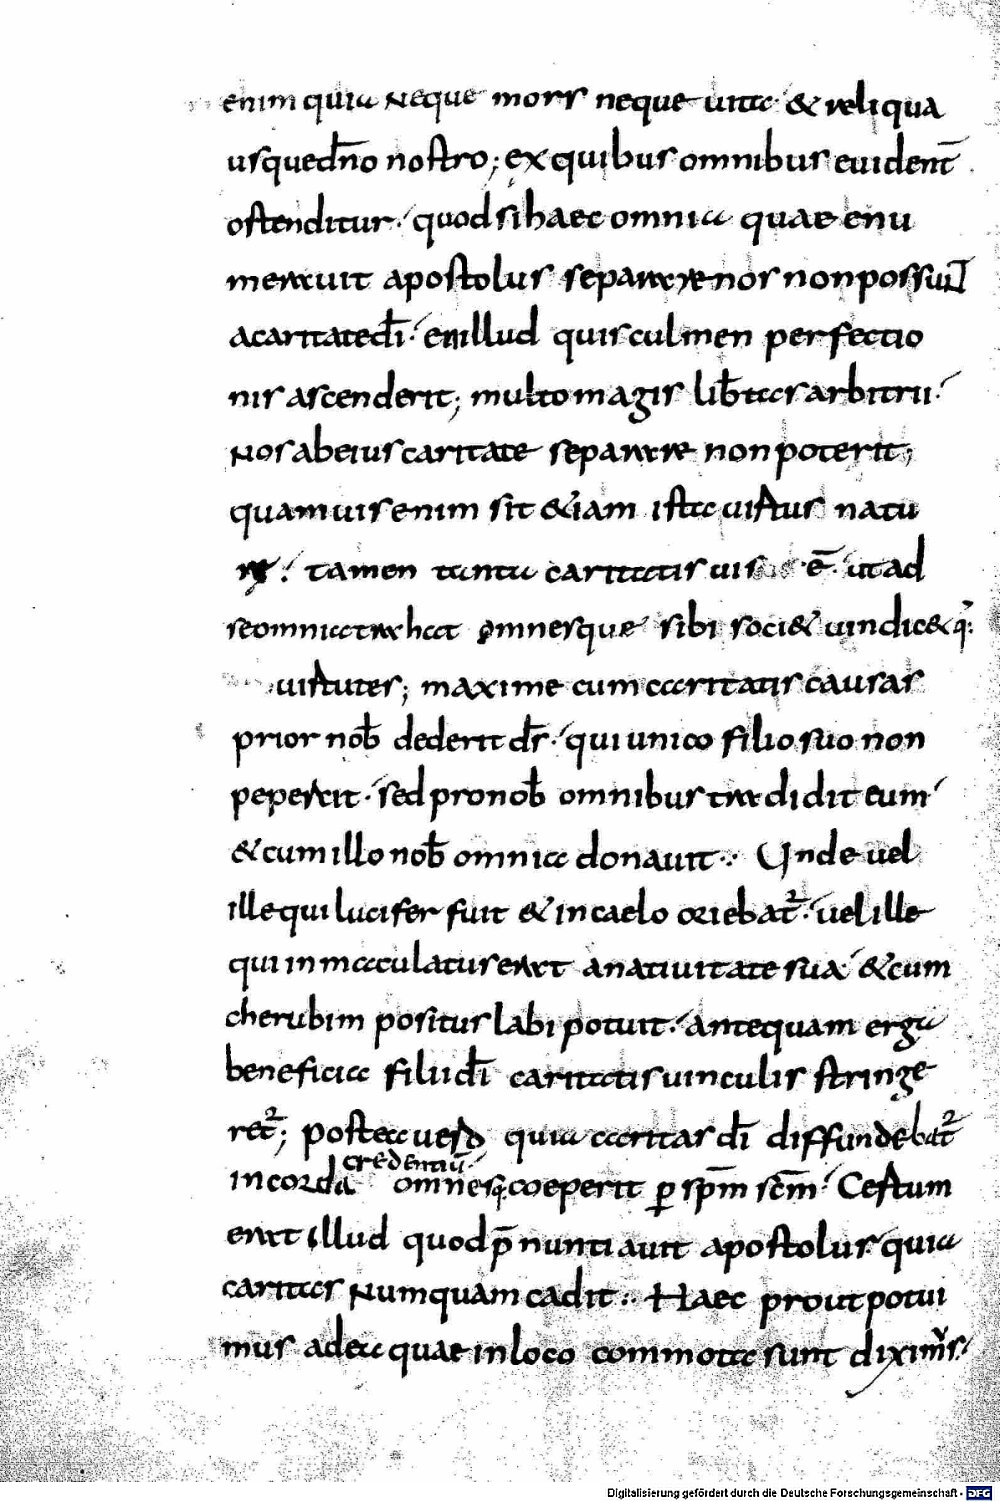 enim quia neque mors neque uita· & reliqua
usquedn̄o nostro; ex quibus omnibus euident̄
ostenditur·/ quod si haec omnia quae enu
merauit apostolus separare nos non possunt
acaritatedī·/ en illud quis culmen perfectio
nis ascenderit; multo magis lib̄tas arbitrii·/
nos abeius caritate separare non poterit;
quamuis enim sit &iam ista uirtus natu
re·/ tamen tanta caritatis uis ē·/ ut ad
seomniatrahat omnesque sibi soci& uindic&q:
uirtutes; maxime cum caritatis causas
prior nob̄ dederit d̄s·/ qui unico filio suo non
pepercit·/ sed pronob̄ omnibus tradidit eum/
& cum illo nob̄ omnia donauit·: Unde uel
ille qui lucifer fuit & in caelo oriebat²·/ uel ille
qui inmaculatus erat anatiuitate sua/ & cum
cherubim positus labi potuit·/ antequam erga
beneficia filii dī caritatis uinculis stringe
ret²; postea uero quia caritas dī diffundebat²
in corda credentiū·/ omnesq; coeperit p̱ sp̄m sc̄m·/ Certum
erat illud quod p̄nuntiauit apostolus/ quia
caritas numquam cadit·: Haec prout potui
mus adea quae inloco commota sunt diximꝰs·/
Digitalisierung gefördert durch die Deutsche Forschungsgemeinschaft - DFG